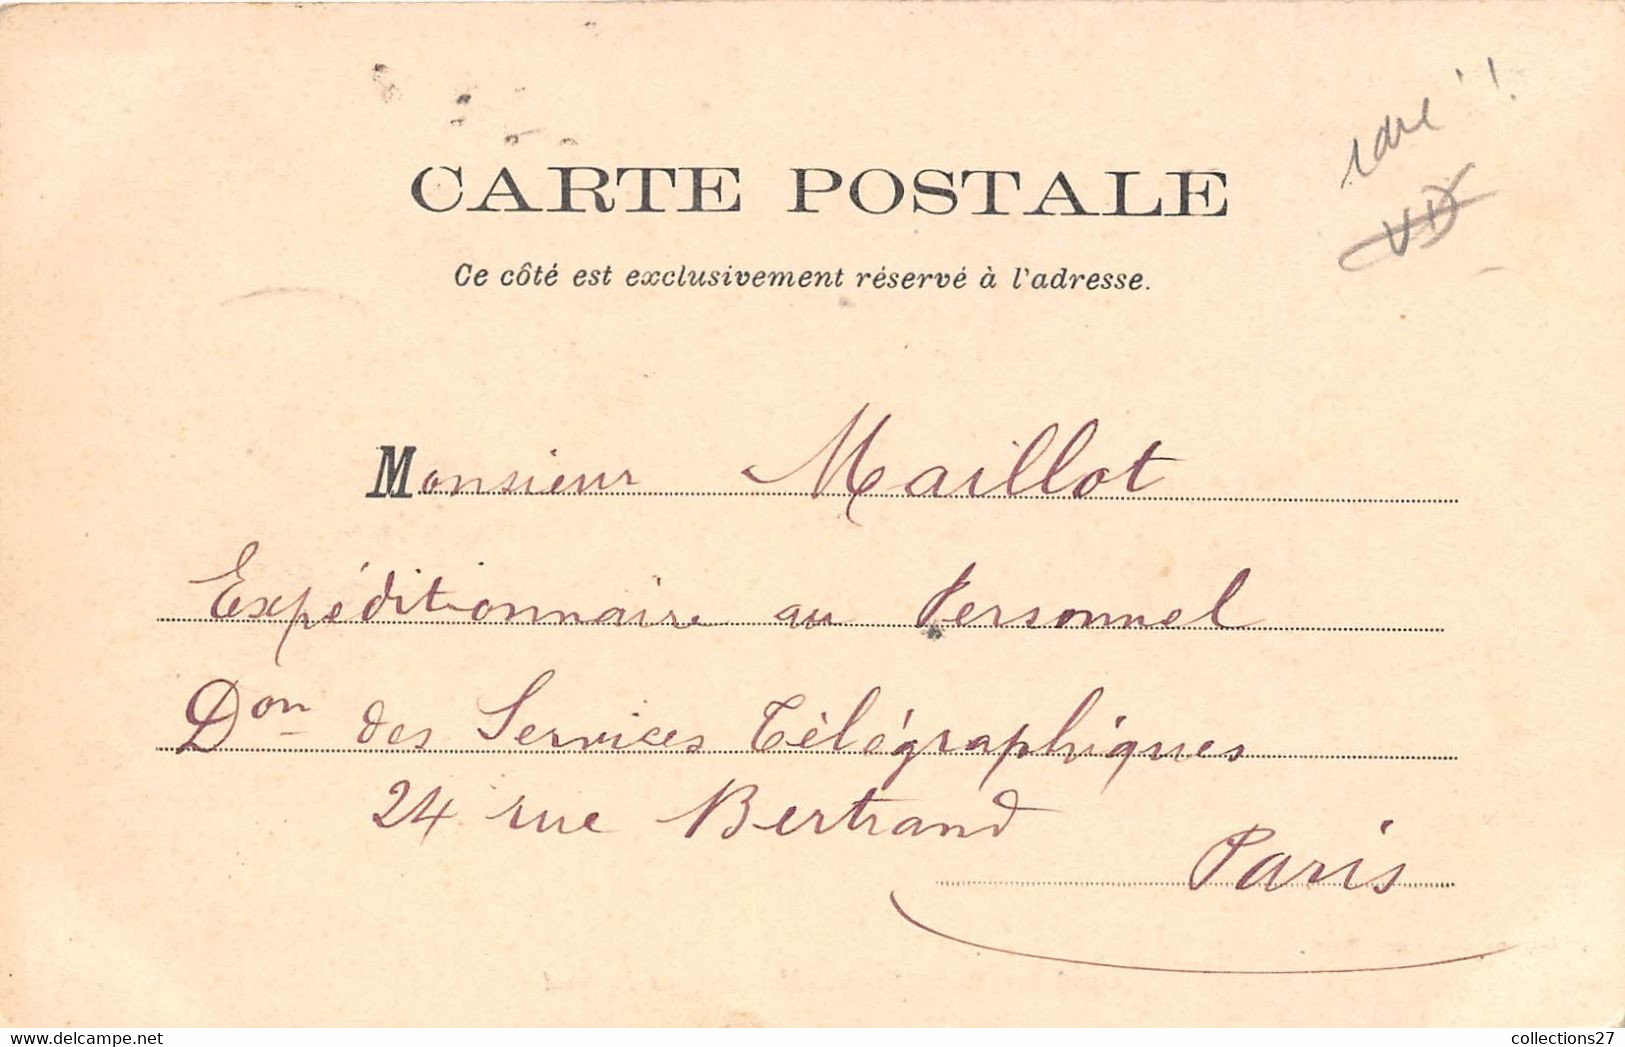 CARTE POSTALE
rare !!
Ce côté est exclusivement réservé à l'adresse.
Monsieur Maillot
Expéditionnaire au Personnel
Don des Services Télégraphiques
24 rue Bertrand
Paris
collections27